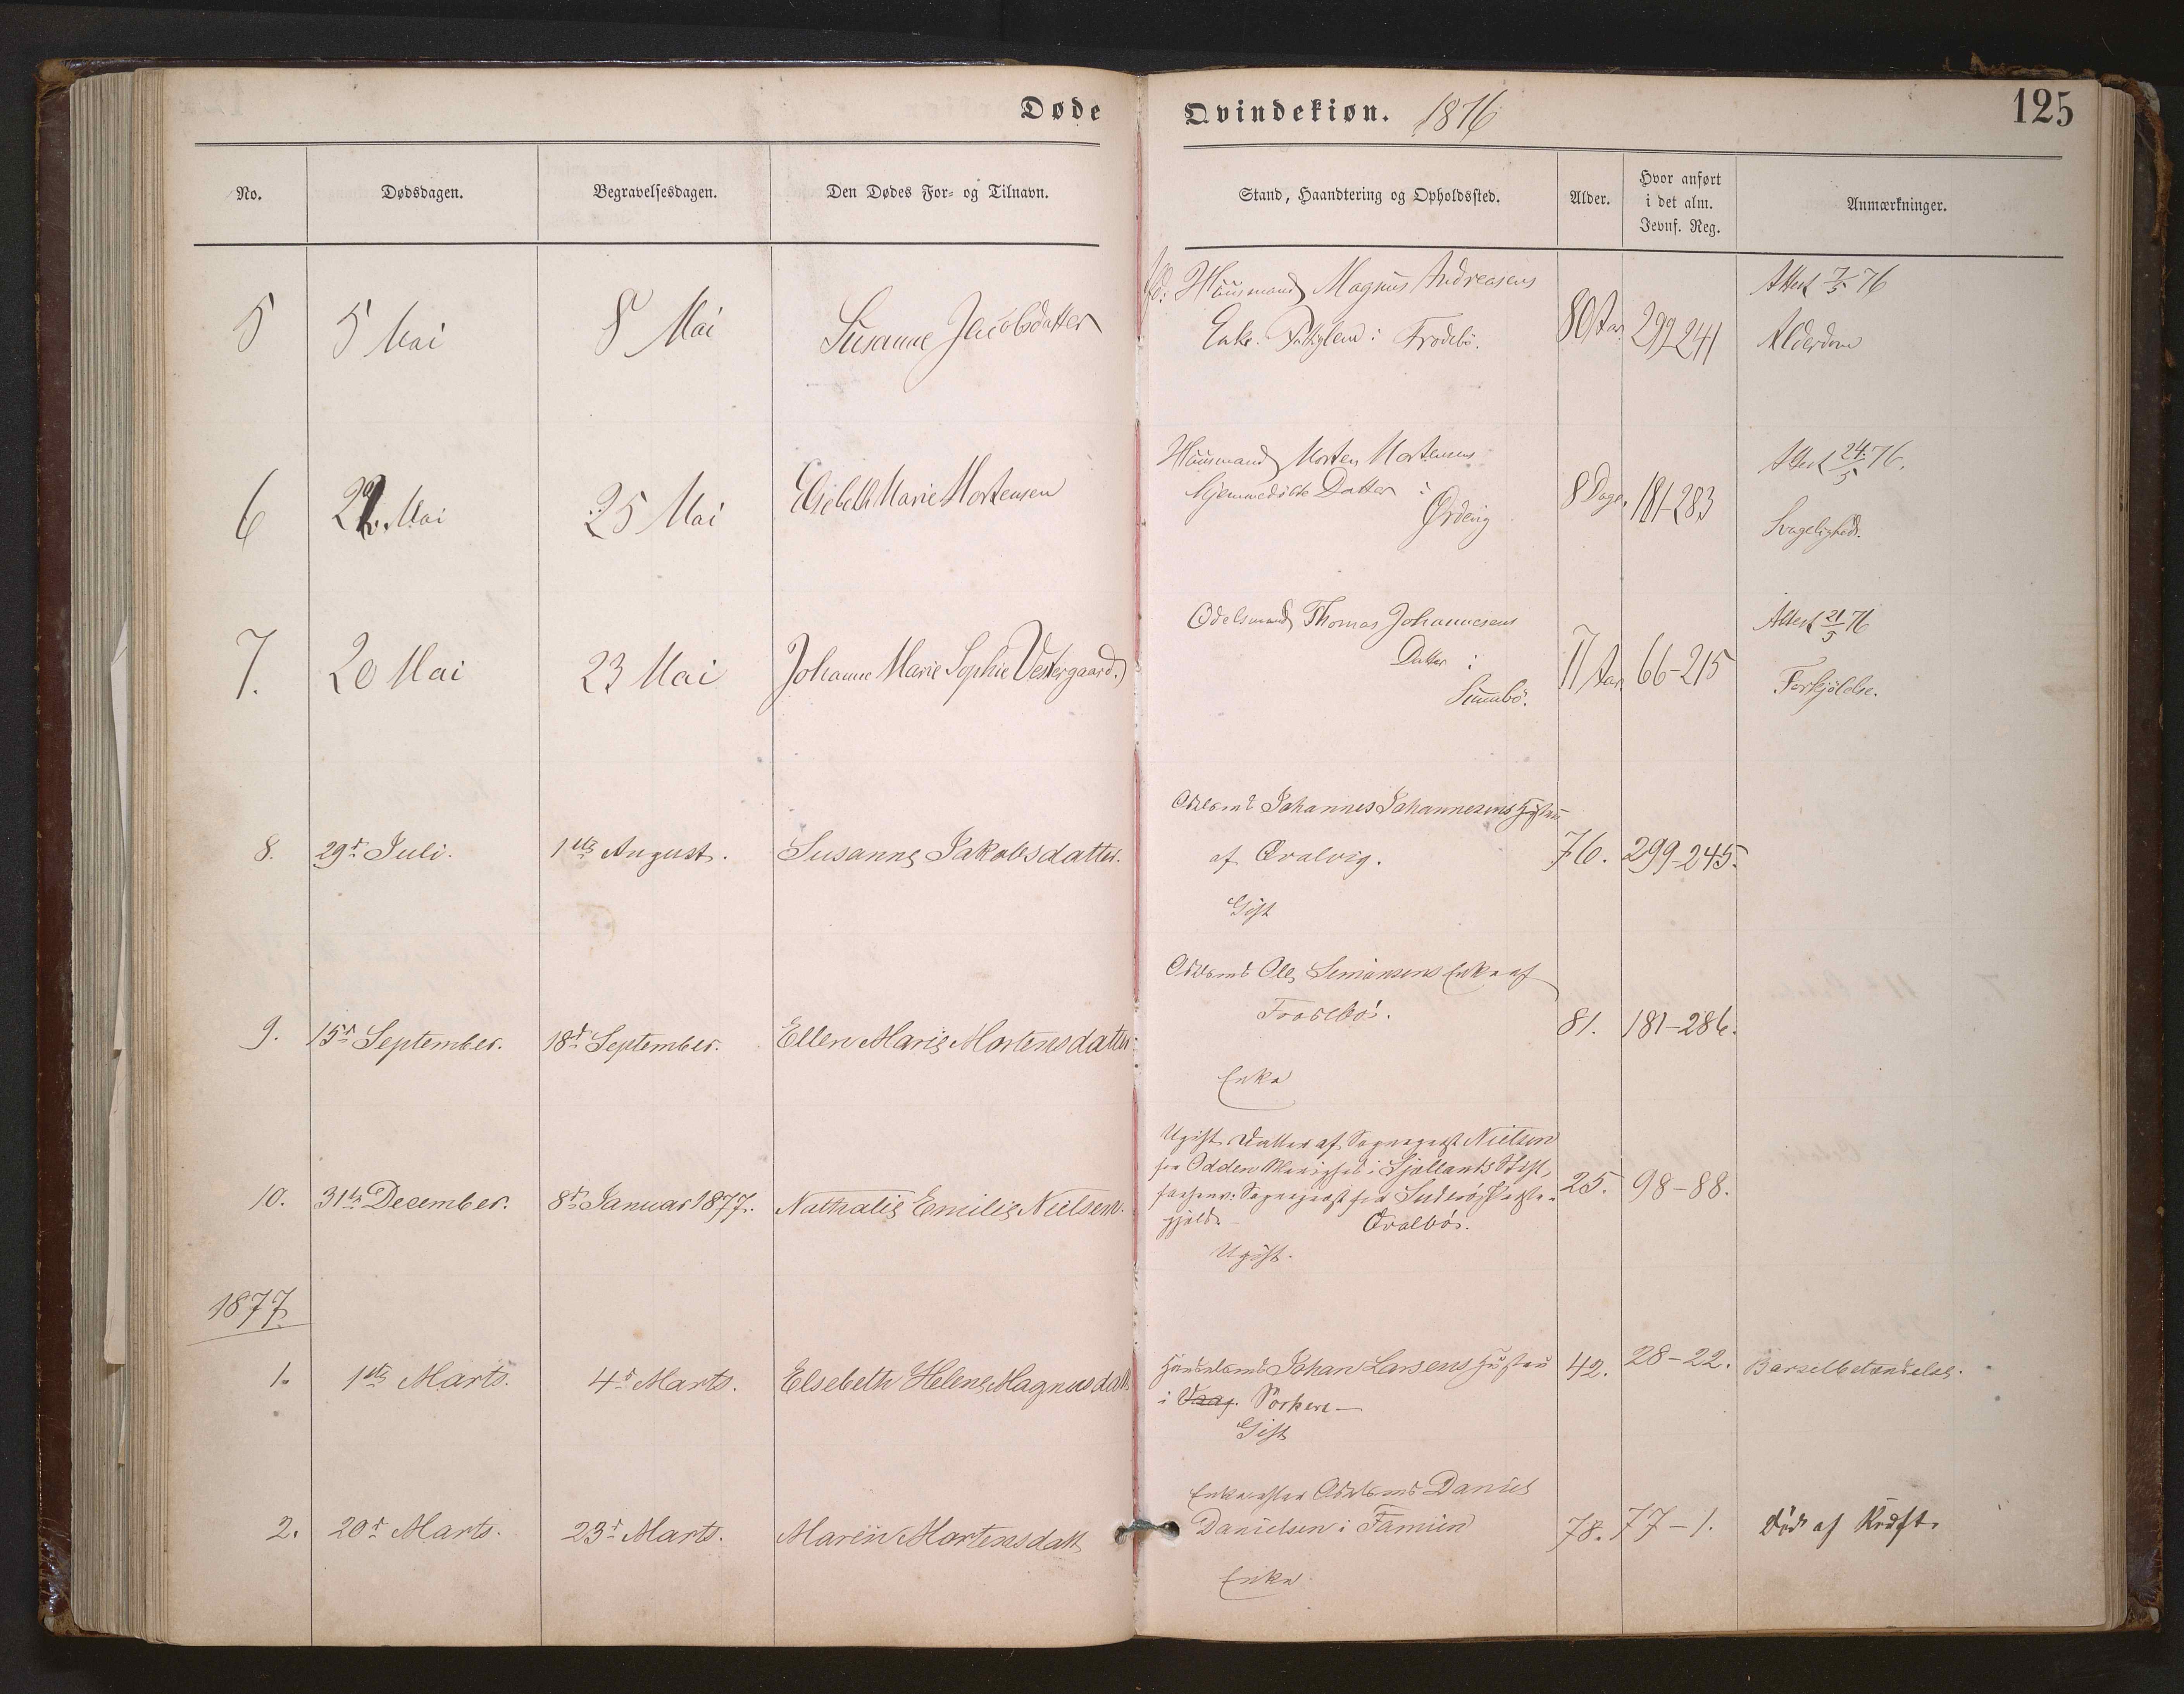 Døde Qvindekiøn. 1876 125
No. Dødsdagen. Begravelsesdagen. Den Dødes For- og Tilnavn. Stand, Haandtering og Opholdssted. Alder. Hvor anført i det alm. Jevnf. Reg. Anmærkninger.
Huusmand Magnus Andreasens
Enke. i Frodebö.
5 5 Mai 8 Mai Susanne Jacobsdatter 80 Aar 299-241
Attest 7/5 76
Alderdom
Huusmand Morten Mortensens
hjemmedöbte Datter i
Ørdevig
6 22. Mai 25 Mai Elsebeth Marie Mortensen 8 Dage, 181-283
Attest 24/5 76.
Svagelighed.
Odelsmand Thomas Johannesens
Datter i
Sumbö.
7. 20 Mai 23 Mai Johanne Marie Sophie Vestergaard. 11 Aar. 66-215
Attest 21/5 76
Forkjölelse.
Odelsmd Johannes Johannesens Hustru
af Qvalvig.
Gift
8. 29de Juli. 1ste August. Susanne Jakobsdatter. 76. 299-245.
Odelsmd Ole Simonsens Enke af
Frodebö.
Enke
9. 15de September. 18de September. Ellen Marie Mortensdatter. 81. 181-286.
Ugift Datter af Sognepræst Nielsen
fra Odden Menighed i Sjællands Stift,
forhenv. Sognepræst for Suderö Præste-
gjæld. Qvalbö.
Ugift.
10. 31te December. 8de Januar 1877. Nathalie Emilie Nielsen. 25. 98-88.
1877.
1. 1ste Marts. 4de Marts. Elsebeth Helene Magnusdatt
Johan Larsens Hustru
i Vaag.
Gift
42. 28-22. Barselbetændelse.
Enke efter Odelsmd Daniel
Danielsen i Famien
Enke
2. 20de Marts. 23de Marts. Maren Mortensdatt 78. 77-1. Död af Kræft.